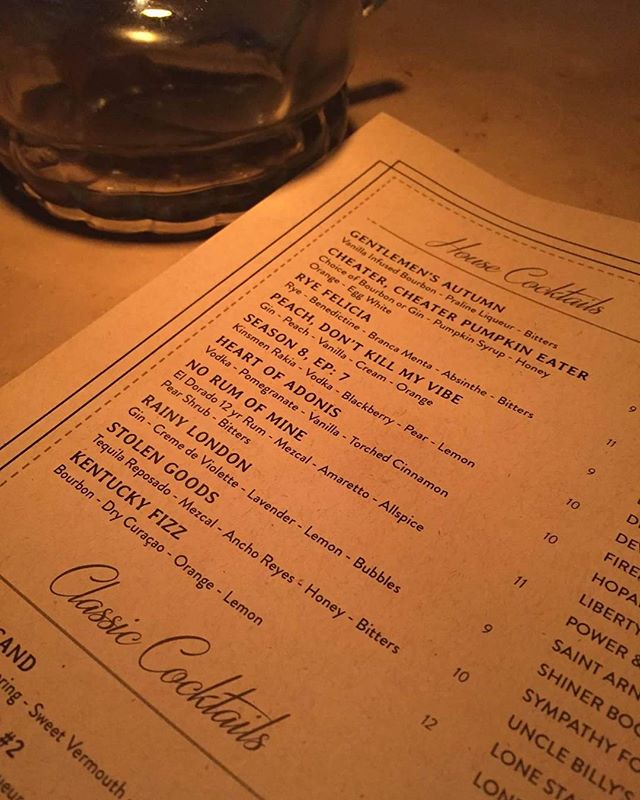 House Cocktails
GENTLEMEN'S AUTUMN
Vanilla Infused Bourbon - Praline Liqueur - Bitters
CHEATER, CHEATER PUMPKIN EATER 9
Choice of Bourbon or Gin - Pumpkin Syrup - Honey
Orange - Egg White
RYE FELICIA 11
Rye - Benedictine - Branca Menta - Absinthe - Bitters
PEACH, DON'T KILL MY VIBE 9
Gin - Peach - Vanilla - Cream - Orange
SEASON 8, EP: 7 10
Kinsmen Rakia - Vodka - Blackberry - Pear - Lemon
HEART OF ADONIS 10
Vodka - Pomegranate - Vanilla - Torched Cinnamon
NO RUM OF MINE 11
El Dorado 12 yr Rum - Mezcal - Amaretto - Allspice
Pear Shrub - Bitters
RAINY LONDON 9
Gin - Creme de Violette - Lavender - Lemon - Bubbles
STOLEN GOODS 10
Tequila Reposado - Mezcal - Ancho Reyes - Honey - Bitters
KENTUCKY FIZZ 12
Bourbon - Dry Curaçao - Orange - Lemon
Classic Cocktails
SAND
ring - Sweet Vermouth
#2
DEV
FIRE
HOPA
LIBERTY
POWER &
SAINT ARN
SHINER BOC
SYMPATHY FO
UNCLE BILLY'S
LONE STA
LON